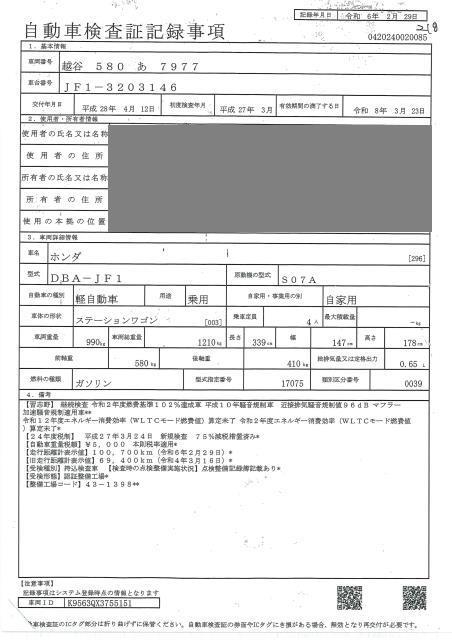 記録年月日 令和 6年 2月 29日
自動車検査証記録事項
0420240020085
1. 基本情報
車両番号 越谷 580 あ 7977
車台番号 JF1-3203146
交付年月日 平成 28年 4月 12日 初度検査年月 平成 27年 3月 有効期間の満了する日 令和 8年 3月 23日
2. 使用者・所有者情報
使用者の氏名又は名称
使用者の住所
所有者の氏名又は名称
所有者の住所
使用の本拠の位置
3. 車両詳細情報
車名 ホンダ [296]
型式 DBA-JF1 原動機の型式 S07A
自動車の種別 軽自動車 用途 乗用 自家用・事業用の別 自家用
車体の形状 ステーションワゴン [003] 乗車定員 4人 最大積載量 -kg
車両重量 990kg 車両総重量 1210kg 長さ 339cm 幅 147cm 高さ 178cm
前軸重 580kg 後軸重 410kg 総排気量又は定格出力 0.65 L
燃料の種類 ガソリン 型式指定番号 17075 類別区分番号 0039
4. 備考
【習志野】 継続検査 令和2年度燃費基準102%達成車 平成10年騒音規制車 近接排気騒音規制値96dB マフラー
加速騒音規制適用車**
令和12年度エネルギー消費効率(WLTCモード燃費値)算定未了 令和2年度エネルギー消費効率(WLTCモード燃費値
)算定未了*
【24年度税制】 平成27年3月24日 新規検査 75%減税措置済み*
【自動車重量税額】 ¥5,000 本則税率適用*
【走行距離計表示値】 100,700km(令和6年2月29日)*
【旧走行距離計表示値】 69,400km(令和4年3月16日)*
【受検種別】持込検査車 【検査時の点検整備実施状況】点検整備記録簿記載あり*
【受検形態】認証整備工場*
【整備工場コード】43-1398**
【注意事項】
記録事項はシステム登録時点の情報となります
車両ID K9563QX3755151
自動車検査証のICタグ部分は折り曲げずに保管ください。自動車検査証の券面やICタグにき損がある場合、無効となり再交付が必要です。